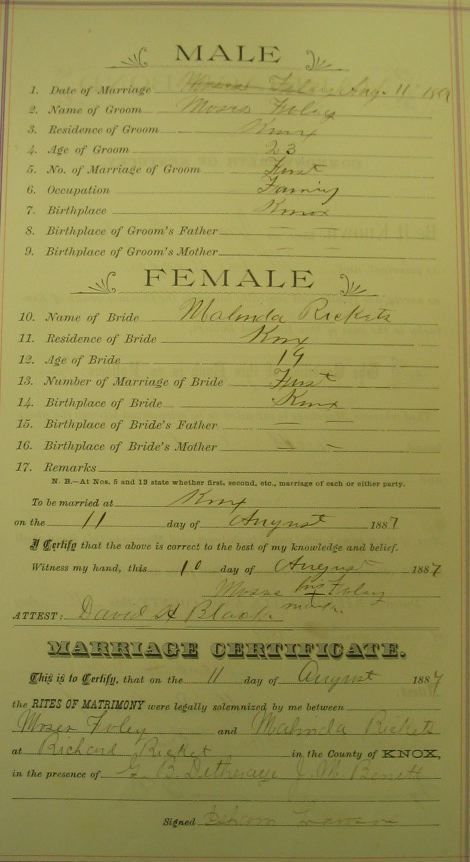 MALE
1. Date of Marriage Aug. 11 1887
2. Name of Groom Moses Foley
3. Residence of Groom Knox
4. Age of Groom 23
5. No. of Marriage of Groom First
6. Occupation Farming
7. Birthplace Knox
8. Birthplace of Groom's Father — —
9. Birthplace of Groom's Mother — —
FEMALE
10. Name of Bride Malinda Rickets
11. Residence of Bride Knox
12. Age of Bride 19
13. Number of Marriage of Bride First
14. Birthplace of Bride Knox
15. Birthplace of Bride's Father — —
16. Birthplace of Bride's Mother — —
17. Remarks
N. B.—At Nos. 5 and 13 state whether first, second, etc., marriage of each or either party.
To be married at Knox
on the 11 day of August 1887
I Certify that the above is correct to the best of my knowledge and belief.
Witness my hand, this 10 day of August 1887
Moses his Foley
mark
ATTEST: David H Black
MARRIAGE CERTIFICATE.
This is to Certify, that on the 11 day of August 1887
the RITES OF MATRIMONY were legally solemnized by me between
Moses Foley and Malinda Rickets
at Richard Ricket in the County of KNOX,
in the presence of G. B. J. M.
Signed